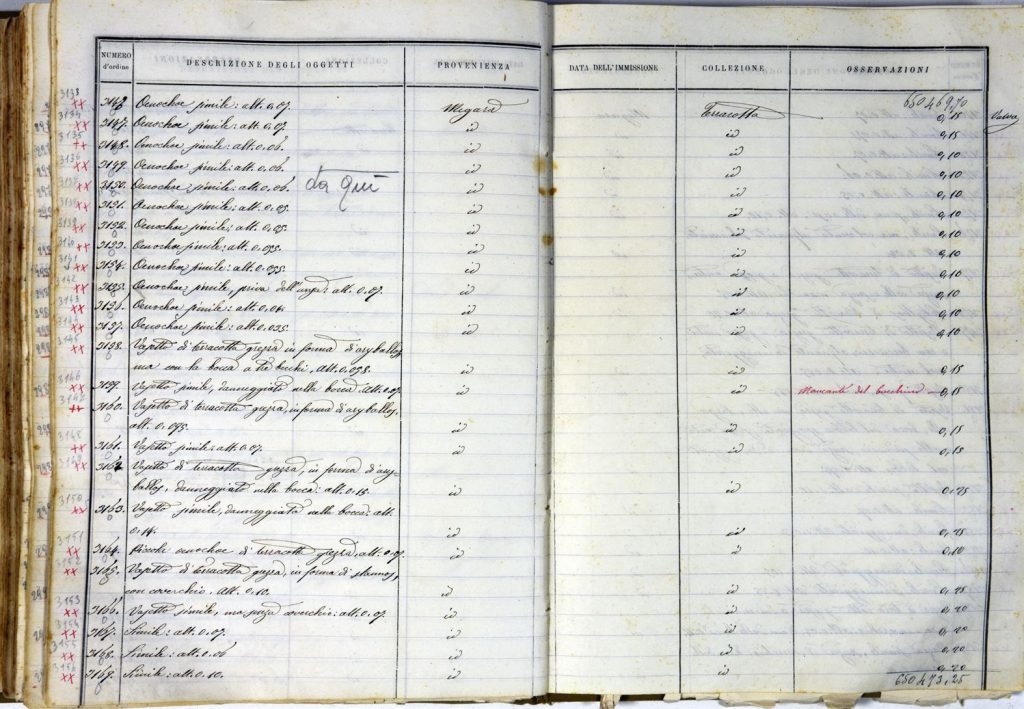 NUMERO d'ordine DESCRIZIONE DEGLI OGGETTI PROVENIENZA DATA DELL'IMMISSIONE COLLEZIONE OSSERVAZIONI
650 469,70
3133 xx Oenochoe simile: alt. 0.07. Megara Terracotta 0,15 Valva
3134 xx 3147. Oenochoe simile: alt. 0.07 id id 0,15
3135 xx 3148. Oenochoe simile: alt. 0.06. id id 0,10
3136 xx 3149. Oenochoe simile: alt. 0.06. id id 0,10
xx 3150. Oenochoe simile: alt. 0.06 da qui id id 0,10
xx 3151. Oenochoe simile: alt. 0.05. id id 0,10
xx 3152. Oenochoe simile: alt. 0.055. id id 0,10
3140 xx 3153. Oenochoe simile: alt. 0.055. id id 0,10
3141 xx 3154. Oenochoe simile: alt. 0.055. id id 0,10
3142 xx 3155. Oenochoe simile, priva dell'ansa: alt. 0.07. id id 0,10
3143 xx 3156. Oenochoe simile: alt. 0.04. id id 0,10
xx 3157. Oenochoe simile: alt. 0.035. id id 0,10
xx 3158. Vasetto di terracotta grezza in forma d'aryballos,
ma con la bocca a tre becchi, alt. 0.058. id id 0,15
3146 xx 3159. Vasetto simile, danneggiato nella bocca. alt. 0.07 id id Mancante del bocchino 0,15
3147 xx 3160. Vasetto di terracotta grezza, in forma d'aryballos.
alt. 0.075. id id 0,15
3148 xx 3161. Vasetto simile: alt. 0.07. id id 0,15
3149 xx 3162 Vasetto di terracotta grezza, in forma d'ary-
ballos, danneggiato nella bocca: alt. 0.15. id id 0,25
3150 xx 3163. Vasetto simile, danneggiato nella bocca: alt.
0.14. id id 0,25
3151 xx 3164. Piccolo oenochoe di terracotta grezza, alt. 0.07. id id 0,10
3152 xx 3165. Vasetto di terracotta grezza, in forma di stamnos,
con coverchio. alt. 0.10. id id 0,25
3153 xx 3166. Vasetto simile, ma senza coverchio: alt. 0.07. id id 0,20
3154 xx 3167. Simile: alt. 0.07. id id 0,20
3155 xx 3168. Simile: alt. 0.06 id id 0,20
3156 xx 3169. Simile: alt. 0.10. id id 0,20
650 473,25